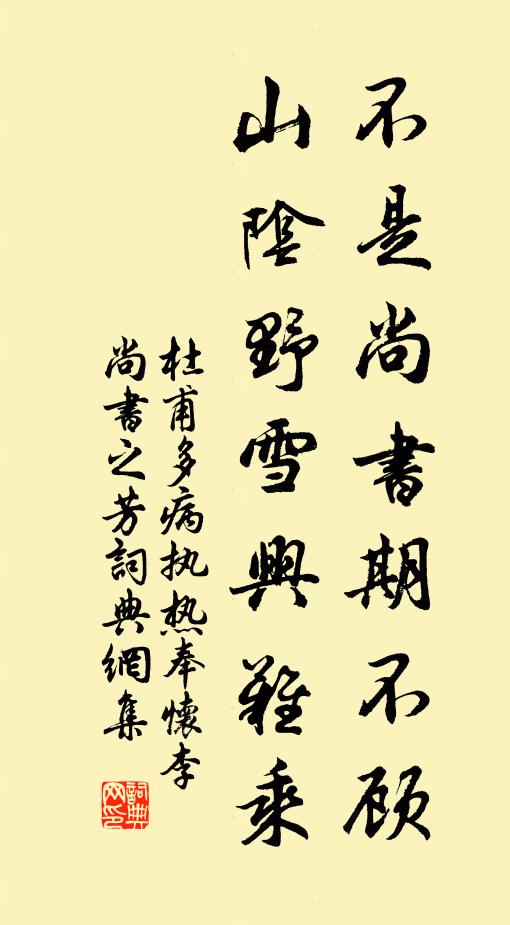 不是尚書期不顾
山陰野雪興難乘
杜甫多病执热奉懷李
尚書之芳詞典網集
詞典网印